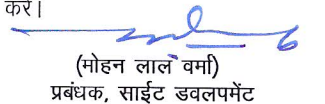 करें।
(मोहन लाल वर्मा)
प्रबंधक, साईट डवलपमेंट